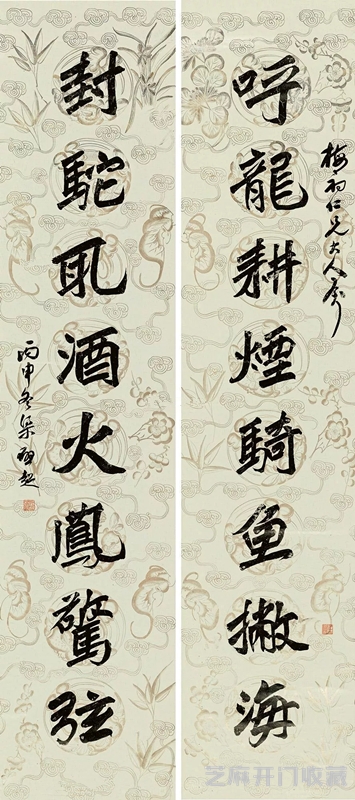 梅初仁兄大人屬
呼龍耕煙騎魚撇海
封駝乳酒火鳳驚弦
丙申冬梁啟超
芝麻开门收藏